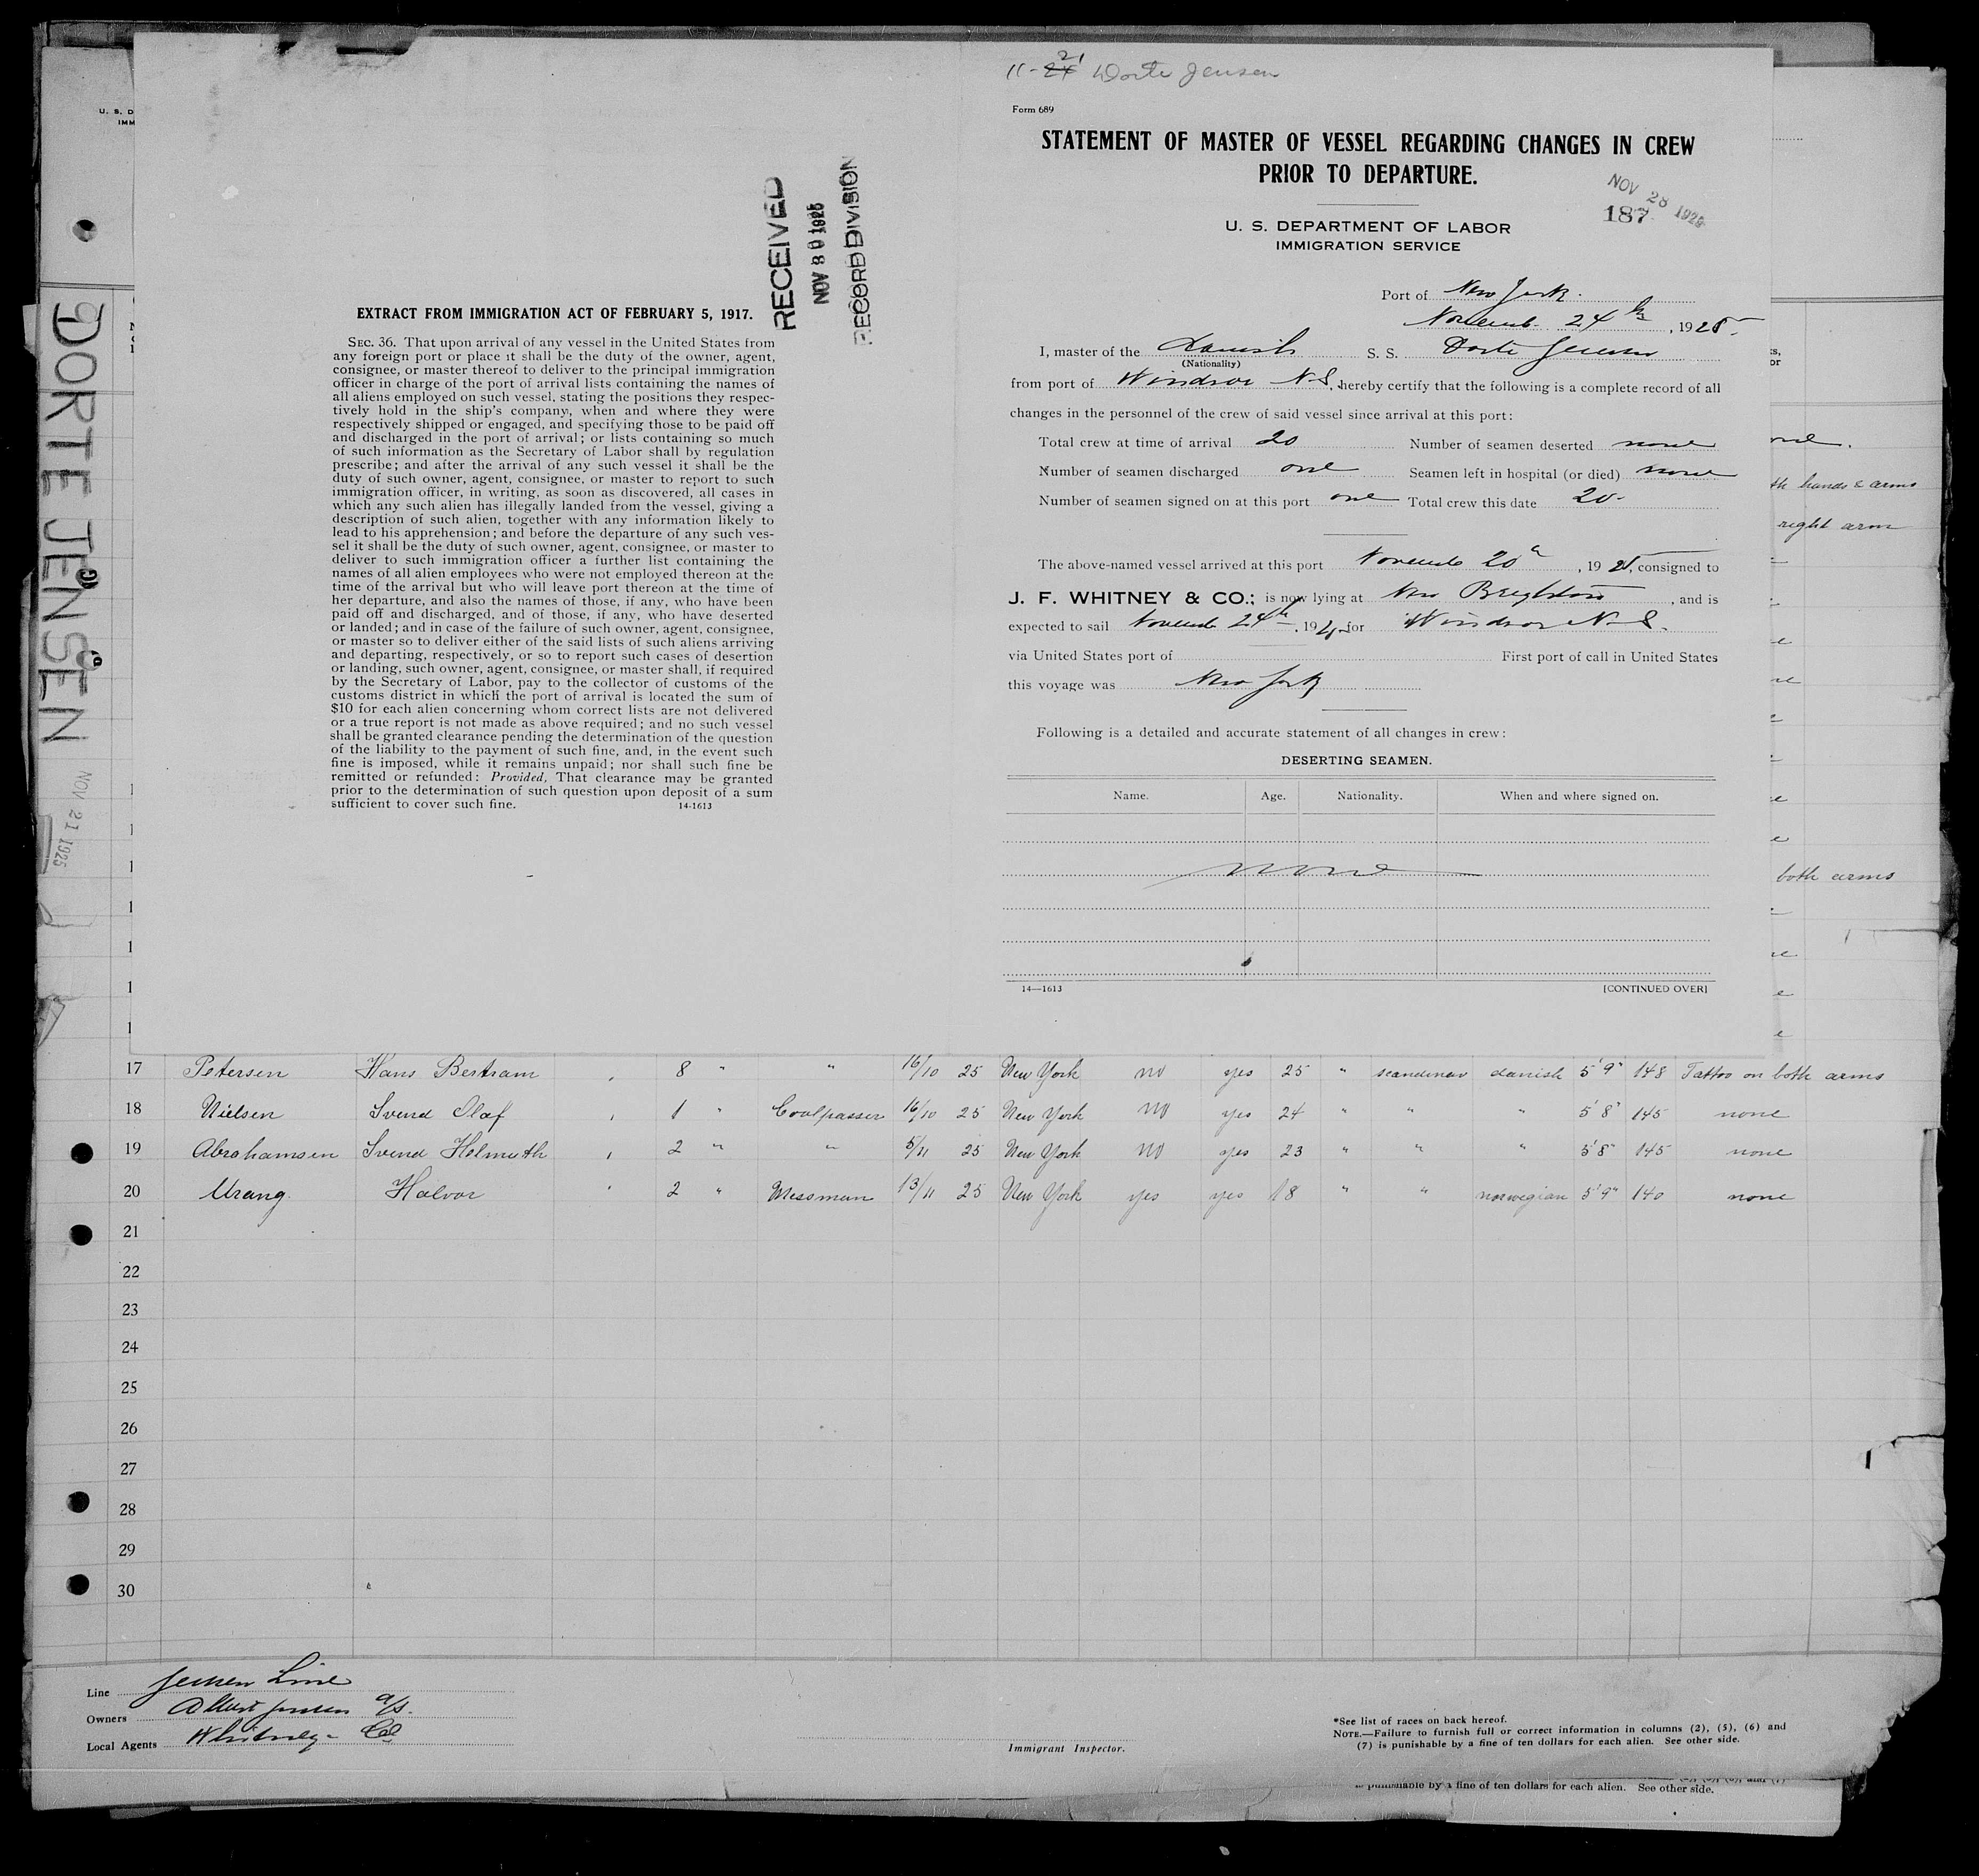 11-24 21 Dorte Jensen
Form 689
STATEMENT OF MASTER OF VESSEL REGARDING CHANGES IN CREW
PRIOR TO DEPARTURE.
NOV 28 1925
187
U. S. DEPARTMENT OF LABOR
IMMIGRATION SERVICE
Port of New York.
Novemb. 24th, 1925.
I, master of the Danish S. S. Dorte Jensen
(Nationality)
from port of Windsor N S, hereby certify that the following is a complete record of all
changes in the personnel of the crew of said vessel since arrival at this port:
Total crew at time of arrival 20 Number of seamen deserted none
Number of seamen discharged one Seamen left in hospital (or died) none
Number of seamen signed on at this port one Total crew this date 20-
The above-named vessel arrived at this port November 20th, 1925, consigned to
J. F. WHITNEY & CO.; is now lying at New Brighton, and is
expected to sail November 24th, 1925 for Windsor N-S.
via United States port of First port of call in United States
this voyage was New York
Following is a detailed and accurate statement of all changes in crew:
DESERTING SEAMEN.
Name. Age. Nationality. When and where signed on.
none
14—1613 [CONTINUED OVER]
RECEIVED
NOV 30 1925
RECORD DIVISION
EXTRACT FROM IMMIGRATION ACT OF FEBRUARY 5, 1917.
SEC. 36. That upon arrival of any vessel in the United States from
any foreign port or place it shall be the duty of the owner, agent,
consignee, or master thereof to deliver to the principal immigration
officer in charge of the port of arrival lists containing the names of
all aliens employed on such vessel, stating the positions they respec-
tively hold in the ship's company, when and where they were
respectively shipped or engaged, and specifying those to be paid off
and discharged in the port of arrival; or lists containing so much
of such information as the Secretary of Labor shall by regulation
prescribe; and after the arrival of any such vessel it shall be the
duty of such owner, agent, consignee, or master to report to such
immigration officer, in writing, as soon as discovered, all cases in
which any such alien has illegally landed from the vessel, giving a
description of such alien, together with any information likely to
lead to his apprehension; and before the departure of any such ves-
sel it shall be the duty of such owner, agent, consignee, or master to
deliver to such immigration officer a further list containing the
names of all alien employees who were not employed thereon at the
time of the arrival but who will leave port thereon at the time of
her departure, and also the names of those, if any, who have been
paid off and discharged, and of those, if any, who have deserted
or landed; and in case of the failure of such owner, agent, consignee,
or master so to deliver either of the said lists of such aliens arriving
and departing, respectively, or so to report such cases of desertion
or landing, such owner, agent, consignee, or master shall, if required
by the Secretary of Labor, pay to the collector of customs of the
customs district in which the port of arrival is located the sum of
$10 for each alien concerning whom correct lists are not delivered
or a true report is not made as above required; and no such vessel
shall be granted clearance pending the determination of the question
of the liability to the payment of such fine, and, in the event such
fine is imposed, while it remains unpaid; nor shall such fine be
remitted or refunded: Provided, That clearance may be granted
prior to the determination of such question upon deposit of a sum
sufficient to cover such fine. 14-1613
DORTE JENSEN
NOV 21 1925
U. S. D
IMM
hands & arms
right arm
both arms
17 Petersen Hans Bertram " 8 " " 16/10 25 New York no yes 25 " scandinav danish 5'9" 148 Tattoo on both arms
18 Nielsen Svend Olaf " 1 " Coalpasser 16/10 25 New York no yes 24 " " " 5'8" 145 none
19 Abrahamsen Svend Holmuth " 2 " " 5/11 25 New York no yes 23 " " " 5'8" 145 none
20 Urang Halvor " 2 " Messman 13/11 25 New York yes yes 18 " " norwegian 5'9" 140 none
21
22
23
24
25
26
27
28
29
30
Line Jensen Line
Owners Albert Jensen a/s.
Local Agents Whitney & Co
Immigrant Inspector.
*See list of races on back hereof.
NOTE.—Failure to furnish full or correct information in columns (2), (5), (6) and
(7) is punishable by a fine of ten dollars for each alien. See other side.
is punishable by a fine of ten dollars for each alien. See other side.